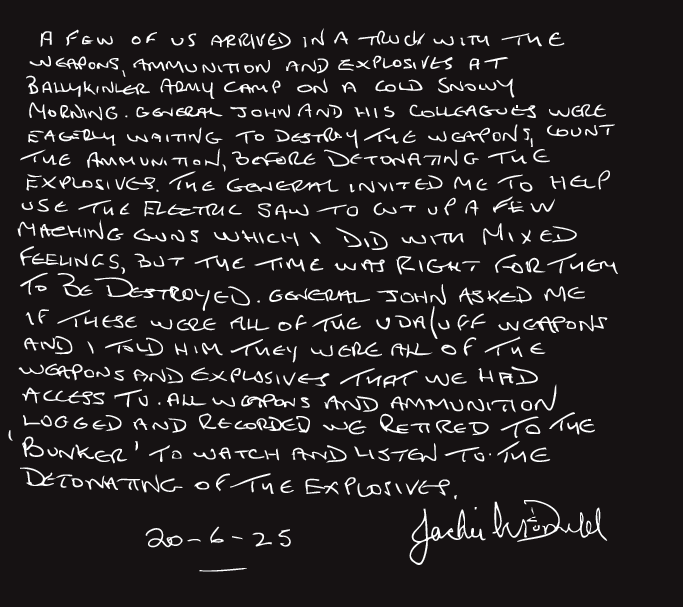 A FEW OF US ARRIVED IN A TRUCK WITH THE
WEAPONS, AMMUNITION AND EXPLOSIVES AT
BALLYKINLER ARMY CAMP ON A COLD SNOWY
MORNING. GENERAL JOHN AND HIS COLLEAGUES WERE
EAGERLY WAITING TO DESTROY THE WEAPONS, COUNT
THE AMMUNITION, BEFORE DETONATING THE
EXPLOSIVES. THE GENERAL INVITED ME TO HELP
USE THE ELECTRIC SAW TO CUT UP A FEW
MACHINE GUNS WHICH I DID WITH MIXED
FEELINGS, BUT THE TIME WAS RIGHT FOR THEM
TO BE DESTROYED. GENERAL JOHN ASKED ME
IF THESE WERE ALL OF THE UDA/UFF WEAPONS
AND I TOLD HIM THEY WERE ALL OF THE
WEAPONS AND EXPLOSIVES THAT WE HAD
ACCESS TO. ALL WEAPONS AND AMMUNITION
LOGGED AND RECORDED WE RETIRED TO THE
'BUNKER' TO WATCH AND LISTEN TO. THE
DETONATING OF THE EXPLOSIVES.
20-6-25 Jackie McDonald